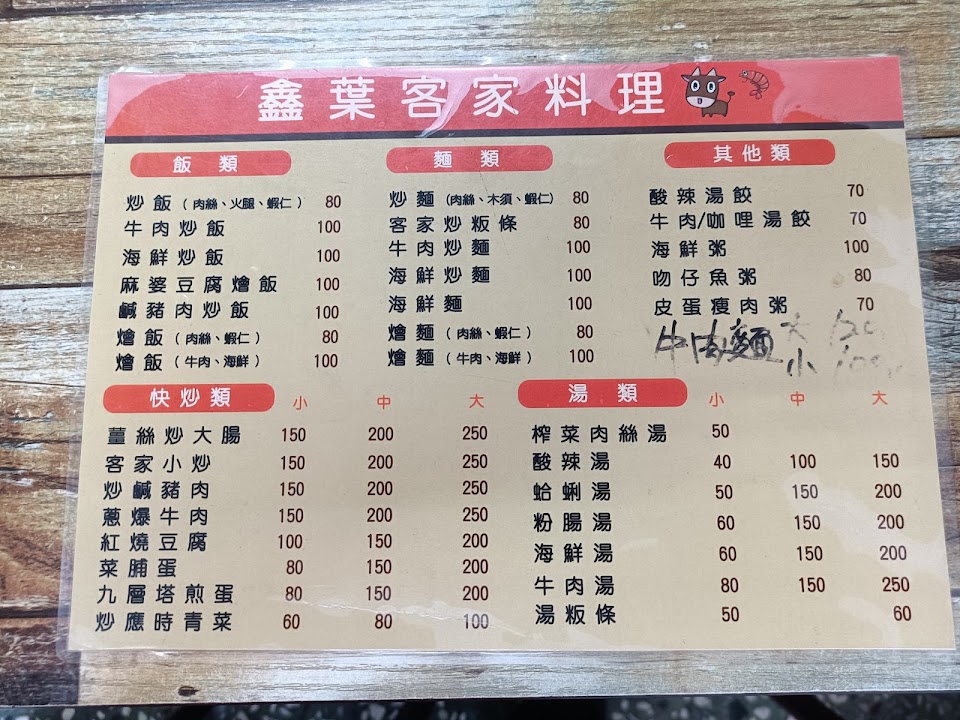 鑫葉客家料理
飯類
炒飯（肉絲、火腿、蝦仁） 80
牛肉炒飯 100
海鮮炒飯 100
麻婆豆腐燴飯 100
鹹豬肉炒飯 100
燴飯（肉絲、蝦仁） 80
燴飯（牛肉、海鮮） 100
麵類
炒麵（肉絲、木須、蝦仁） 80
客家炒粄條 80
牛肉炒麵 100
海鮮炒麵 100
海鮮麵 100
燴麵（肉絲、蝦仁） 80
燴麵（牛肉、海鮮） 100
其他類
酸辣湯餃 70
牛肉/咖哩湯餃 70
海鮮粥 100
吻仔魚粥 80
皮蛋瘦肉粥 70
牛肉麵 大
小 100
快炒類 小 中 大
薑絲炒大腸 150 200 250
客家小炒 150 200 250
炒鹹豬肉 150 200 250
蔥爆牛肉 150 200 250
紅燒豆腐 100 150 200
菜脯蛋 80 150 200
九層塔煎蛋 80 150 200
炒應時青菜 60 80 100
湯類 小 中 大
榨菜肉絲湯 50
酸辣湯 40 100 150
蛤蜊湯 50 150 200
粉腸湯 60 150 200
海鮮湯 60 150 200
牛肉湯 80 150 250
湯粄條 50 60